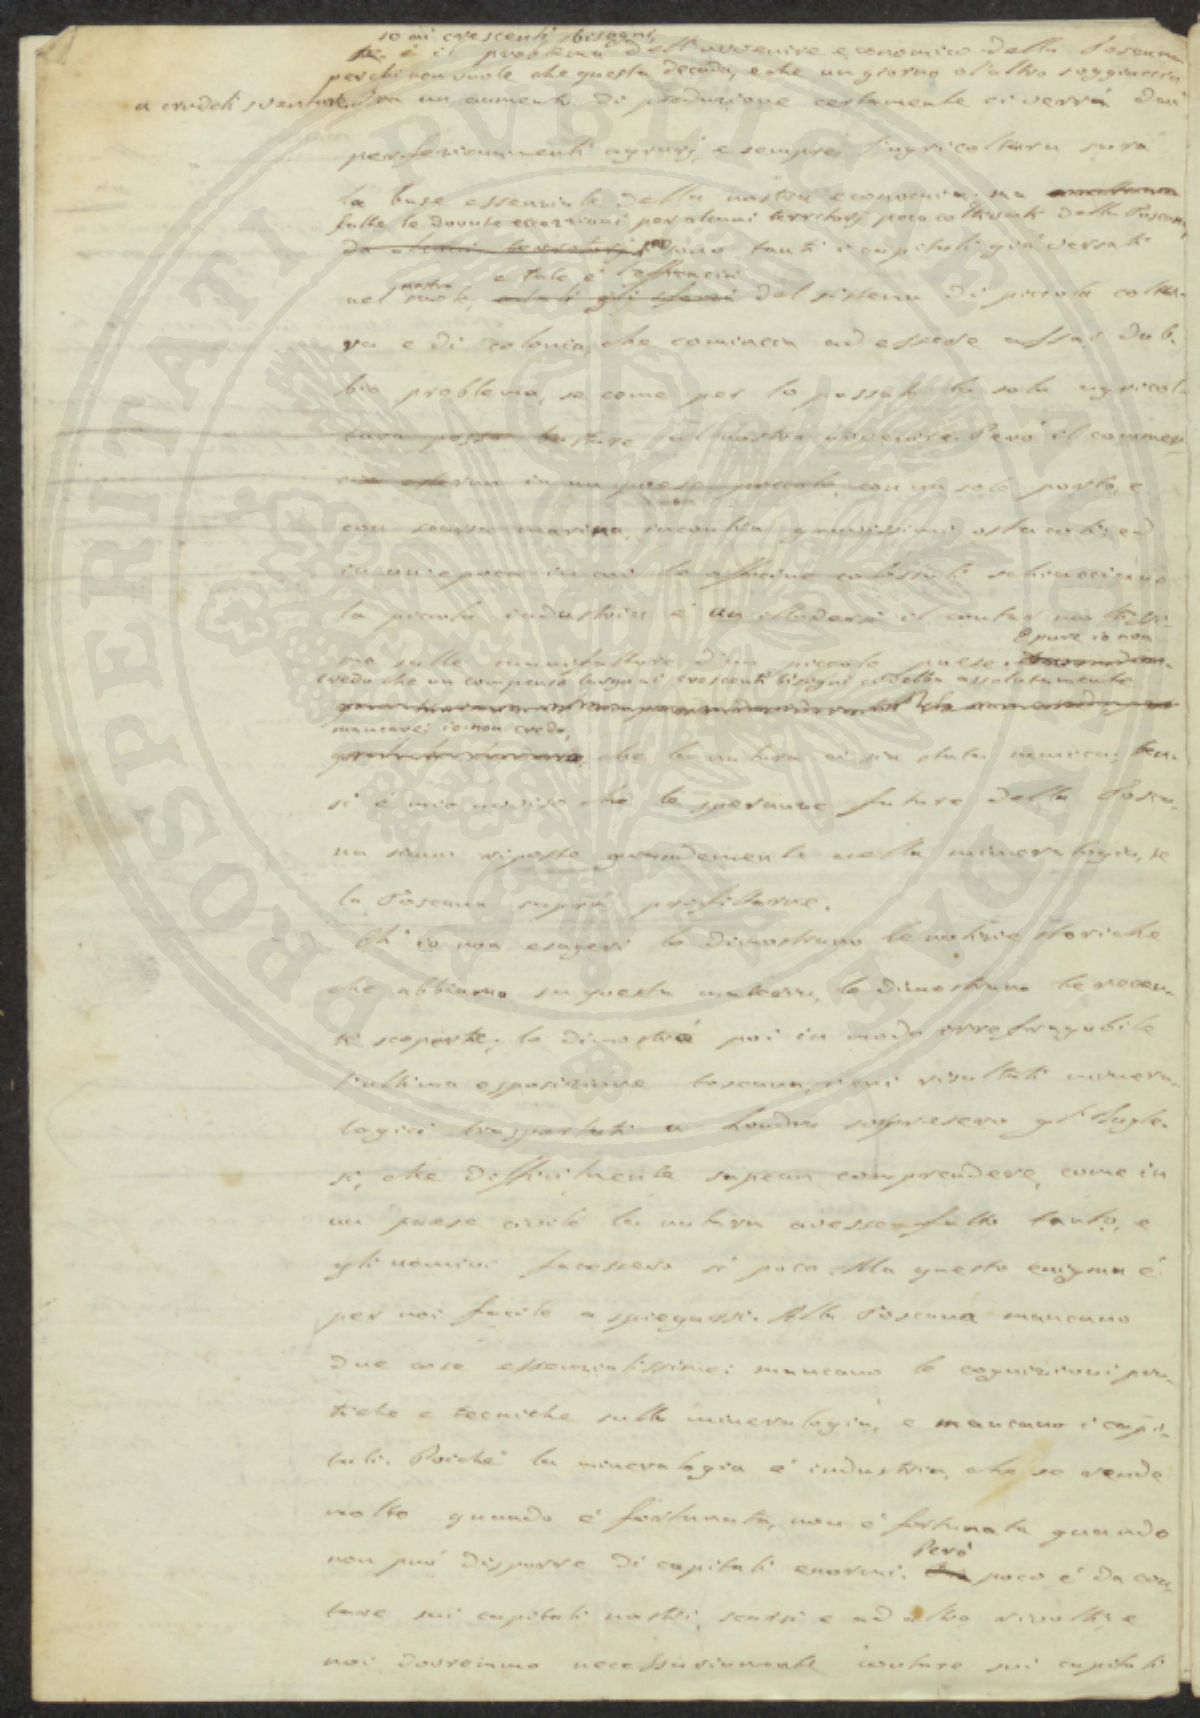 so ai crescenti bisogni,
è il problema dell'avvenire economico della Toscana
perchè non vuole che questa decada, e che un giorno o l'altro soggiaccia
a crudeli sventure. Ora un aumento di produzione certamente ci verrà dai
perfezionamenti agrarj, e sempre l'agricoltura sarà
la base essenziale della nostra economia; ma
fatte le dovute eccezioni per alcuni territorj poco coltivati della Toscana,
da alcuni territorj sono tanti i capitali già versati
nostro e tale è l'efficacia
nel suolo, e tali gli sforzi del sistema di piccola coltu-
ra e di colonia, che comincia ad essere assai dub-
bio problema, se come per lo passato la sola agricol-
tura possa bastare nel nostro avvenire. Però il commer-
cio esterno in un paese piccolo, con un solo porto, e
con scarsa marina, incontra gravissimi ostacoli; ed
in un'epoca in cui le officine colossali schiacciano
la piccola industria è un illudersi il contar moltissi-
mo sulle manifatture d'un piccolo paese.
Eppure io non
credo che un compenso largo ai crescenti bisogni ci debba assolutamente
mancare; io non credo,
che la natura ci sia stata nemica; ben-
sì è mio avviso che le speranze future della Tosca-
na siano riposte grandemente nella mineralogia, se
la Toscana saprà profittarne.
Ch'io non esageri lo dimostrano le notizie storiche
che abbiamo su questa materia, lo dimostrano le recen-
ti scoperte; lo dimostrò poi in modo irrefragabile
l'ultima esposizione toscana, i cui risultati minera-
logici trasportati a Londra sorpresero gl'Ingle-
si, che difficilmente sapean comprendere, come in
un paese civile la natura avesse fatto tanto, e
gli uomini facessero sì poco. Ma questo enigma è
per noi facile a spiegarsi. Alla Toscana mancano
due cose essenzialissime: mancano le cognizioni pra-
tiche e tecniche sulla mineralogia, e mancano i capi-
tali. Poichè la mineralogia è industria, che se rende
molto quando è fortunata, non è fortunata quando
non può disporre di capitali enormi.
Però
poco è da con-
tare sui capitali nostri, scarsi e ad altro rivolti; e
noi dovremmo necessariamente contare sui capitali